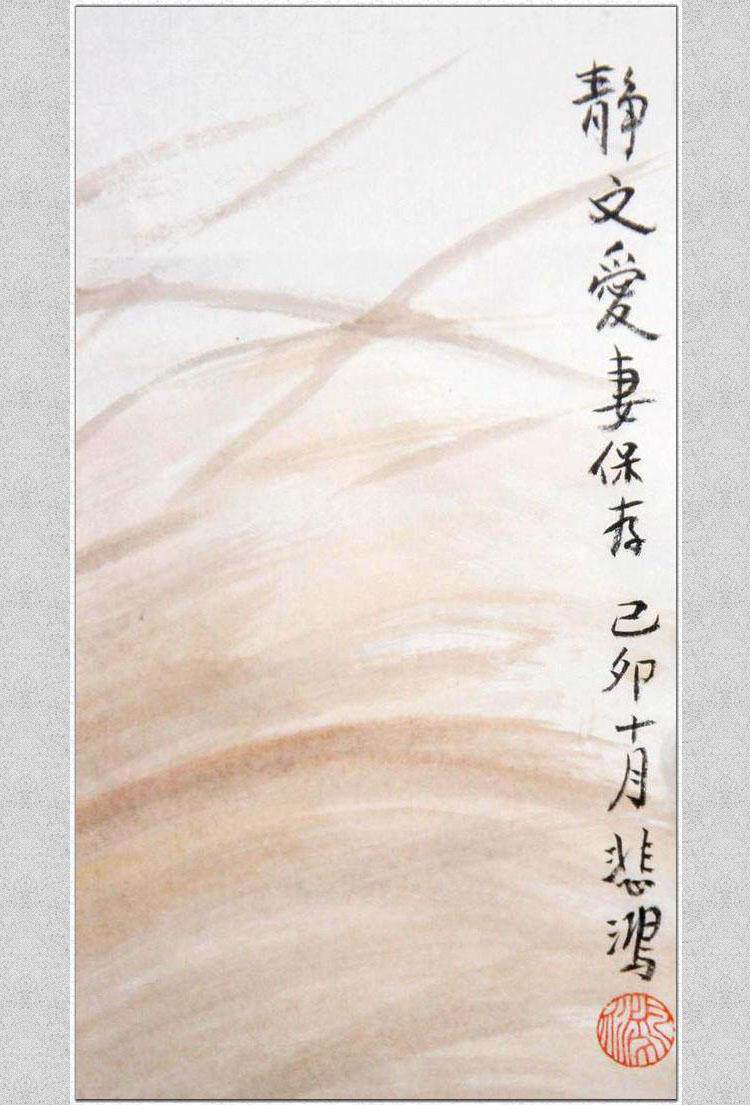 靜文愛妻保存 己卯十月 悲鴻